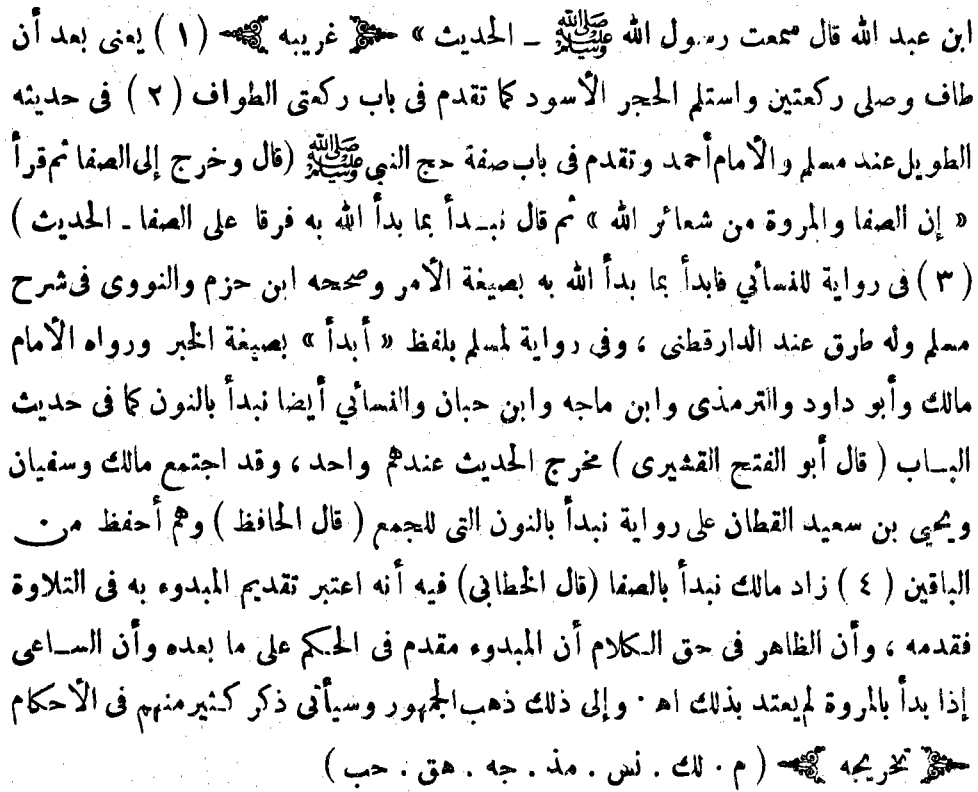 ابن عبد الله قال سمعت رسول الله ﷺ ـ الحديث » ﴿ غريبه ﴾ (١) يعنى بعد أن
طاف وصلى ركعتين واستلم الحجر الأسود كما تقدم فى باب ركعتى الطواف (٢) فى حديثه
الطويل عند مسلم والأمام أحمد وتقدم فى باب صفة حج النبى ﷺ (قال وخرج إلى الصفا ثم قرأ
« إن الصفا والمروة من شعائر الله » ثم قال نبـدأ بما بدأ الله به فرقا على الصفا ـ الحديث )
(٣) فى رواية للنسائي فابدأ بما بدأ الله به بصيغة الأمر وصححه ابن حزم والنووى فى شرح
مسلم وله طرق عند الدارقطنى ، وفى رواية لمسلم بلفظ « أبدأ » بصيغة الخبر ورواه الأمام
مالك وأبو داود والترمذى وابن ماجه وابن حبان والنسائي أيضا نبدأ بالنون كما فى حديث
البـاب ( قال أبو الفتح القشيرى ) مخرج الحديث عندهم واحد ، وقد اجتمع مالك وسفيان
ويحيى بن سعيد القطان على رواية نبدأ بالنون التى للجمع ( قال الحافظ ) وهم أحفظ من
الباقين (٤) زاد مالك نبدأ بالصفا (قال الخطابى) فيه أنه اعتبر تقديم المبدوء به فى التلاوة
فقدمه ، وأن الظاهر فى حق الـكلام أن المبدوء مقدم فى الحـكم على ما بعده وأن السـاعى
إذا بدأ بالمروة لم يعتد بذلك اه . وإلى ذلك ذهب الجمهور وسيأتى ذكر كـثير منهم فى الأحكام
﴿ تخريجه ﴾ ( م . لك . نس . مذ . جه . هق . حب )